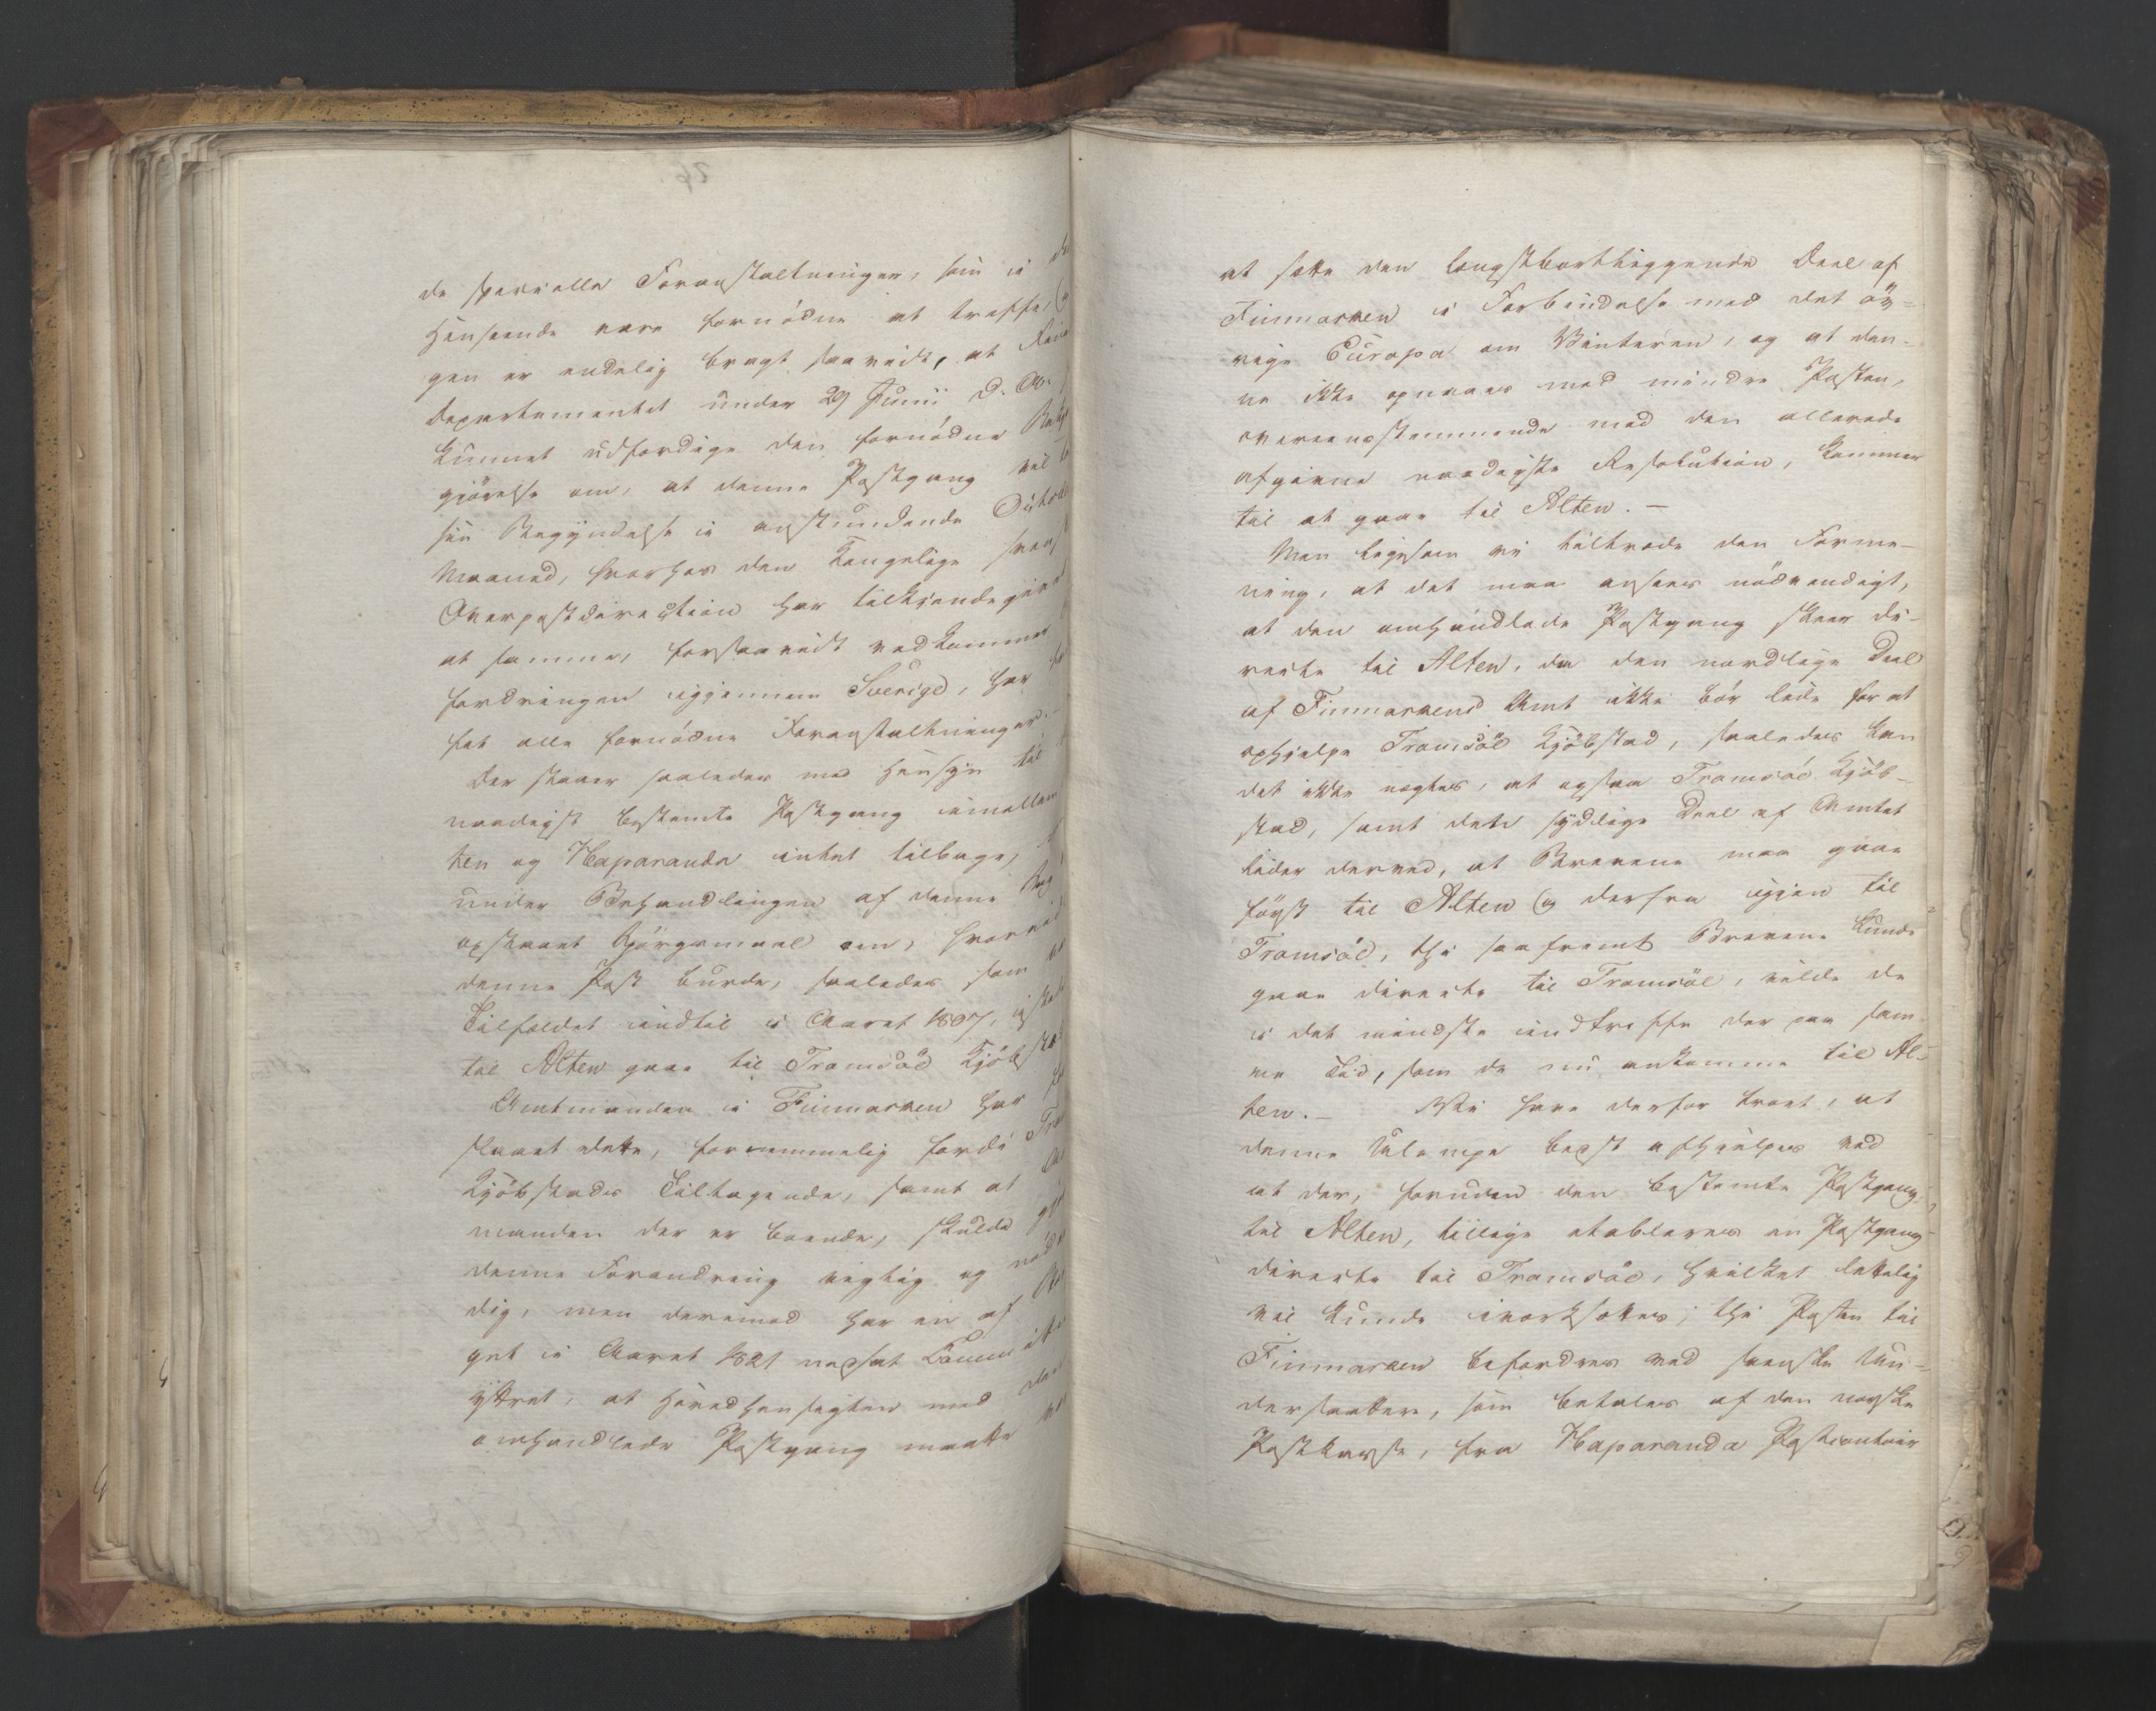 de specielle Foranstaltninger, som i
Henseende vare fornödne at treffe,
gen er endelig bragt saavidt, at
Departementet under 29 Junii d. A.
kunnet udfærdige den fornödne
gjörelse om, at denne Postgang vil
sin Begyndelse i anstundende Octob
Maaned, hvorhos den Kongelige svensk
Overpostdirection har tilkjendegivet
at samme, forsaavidt vedkommer
fordringen igjennem Sverige, har
fet alle fornödne Foranstaltninger.
Der staaer saaledes med Hensyn til
naadigst bestemte Postgang imellem
ten og Haparanda intet tilbage,
under Behandlingen af denne
opstaaet Spörgsmaal om, hvorvidt
denne Post burde, saaledes som
Tilfældet indtil i Aaret 1807, istedet
til Alten gaae til Tromsöe Kjöbstad
Amtmanden i Finmarken har
slaaet dette, fornemmelig fordi Trom
Kjöbstads Tiltagende, samt at
manden der er boende, skulde
denne Forandring vigtig og nödv
dig, men derimod har en af
get i Aaret 1821 nedsat Committe
yttret, at Hovedhensigten med den
omhandlede Postgang maatte
at sætte den længstbortliggende Deel af
Finmarken i Forbindelse med det öv-
rige Europa om Vinteren, og at den-
ne ikke opnaaes med mindre Posten,
overeensstemmende med den allerede
afgivne naadigste Resolution, kommer
til at gaae til Alten. —
Men ligesom vi tiltræde den Forme-
ning, at det maa ansees nödvendigt,
at den omhandlede Postgang skeer di-
recte til Alten, da den nordlige Deel
af Finmarkens Amt ikke bör lide for at
ophjelpe Tromsöe Kjöbstad, saaledes kan
det ikke negtes, at ogsaa Tromsöe Kjöb-
stad, samt den sydlige Deel af Amtet
lider derved, at Brevene maa gaae
först til Alten og derfra igjen til
Tromsöe, thi saafremt Brevene kunde
gaae directe til Tromsöe, vilde de
i det mindste indtreffe der paa sam-
me Tid, som de nu ankomme til Al-
ten. — Vi have derfor troet, at
denne Ulempe bedst afhjelpes ved
at der, foruden den bestemte Postgang
til Alten, tillige etableres en Postgang
directe til Tromsöe, hvilket letteligt
vel kunde iverksættes; thi Posten til
Finmarken befordres ved svenske Un-
dersaatter, som betales af den norske
Postkasse, fra Haparanda Postcontoir